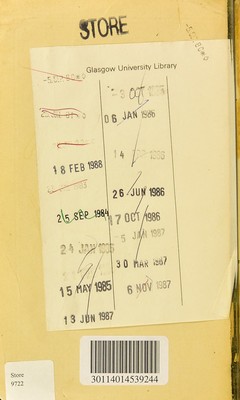 STORE
Glasgow University Library
3 OCT
06 JAN 1986
14
18 FEB 1988
26 JUN 1986
25 SEP 1984
17 OCT 1986
5 JAN 1987
24 JAN
30 MAR 1987
15 MAY 1985
6 NOV 1987
13 JUN 1987
Store
9722
30114014539244